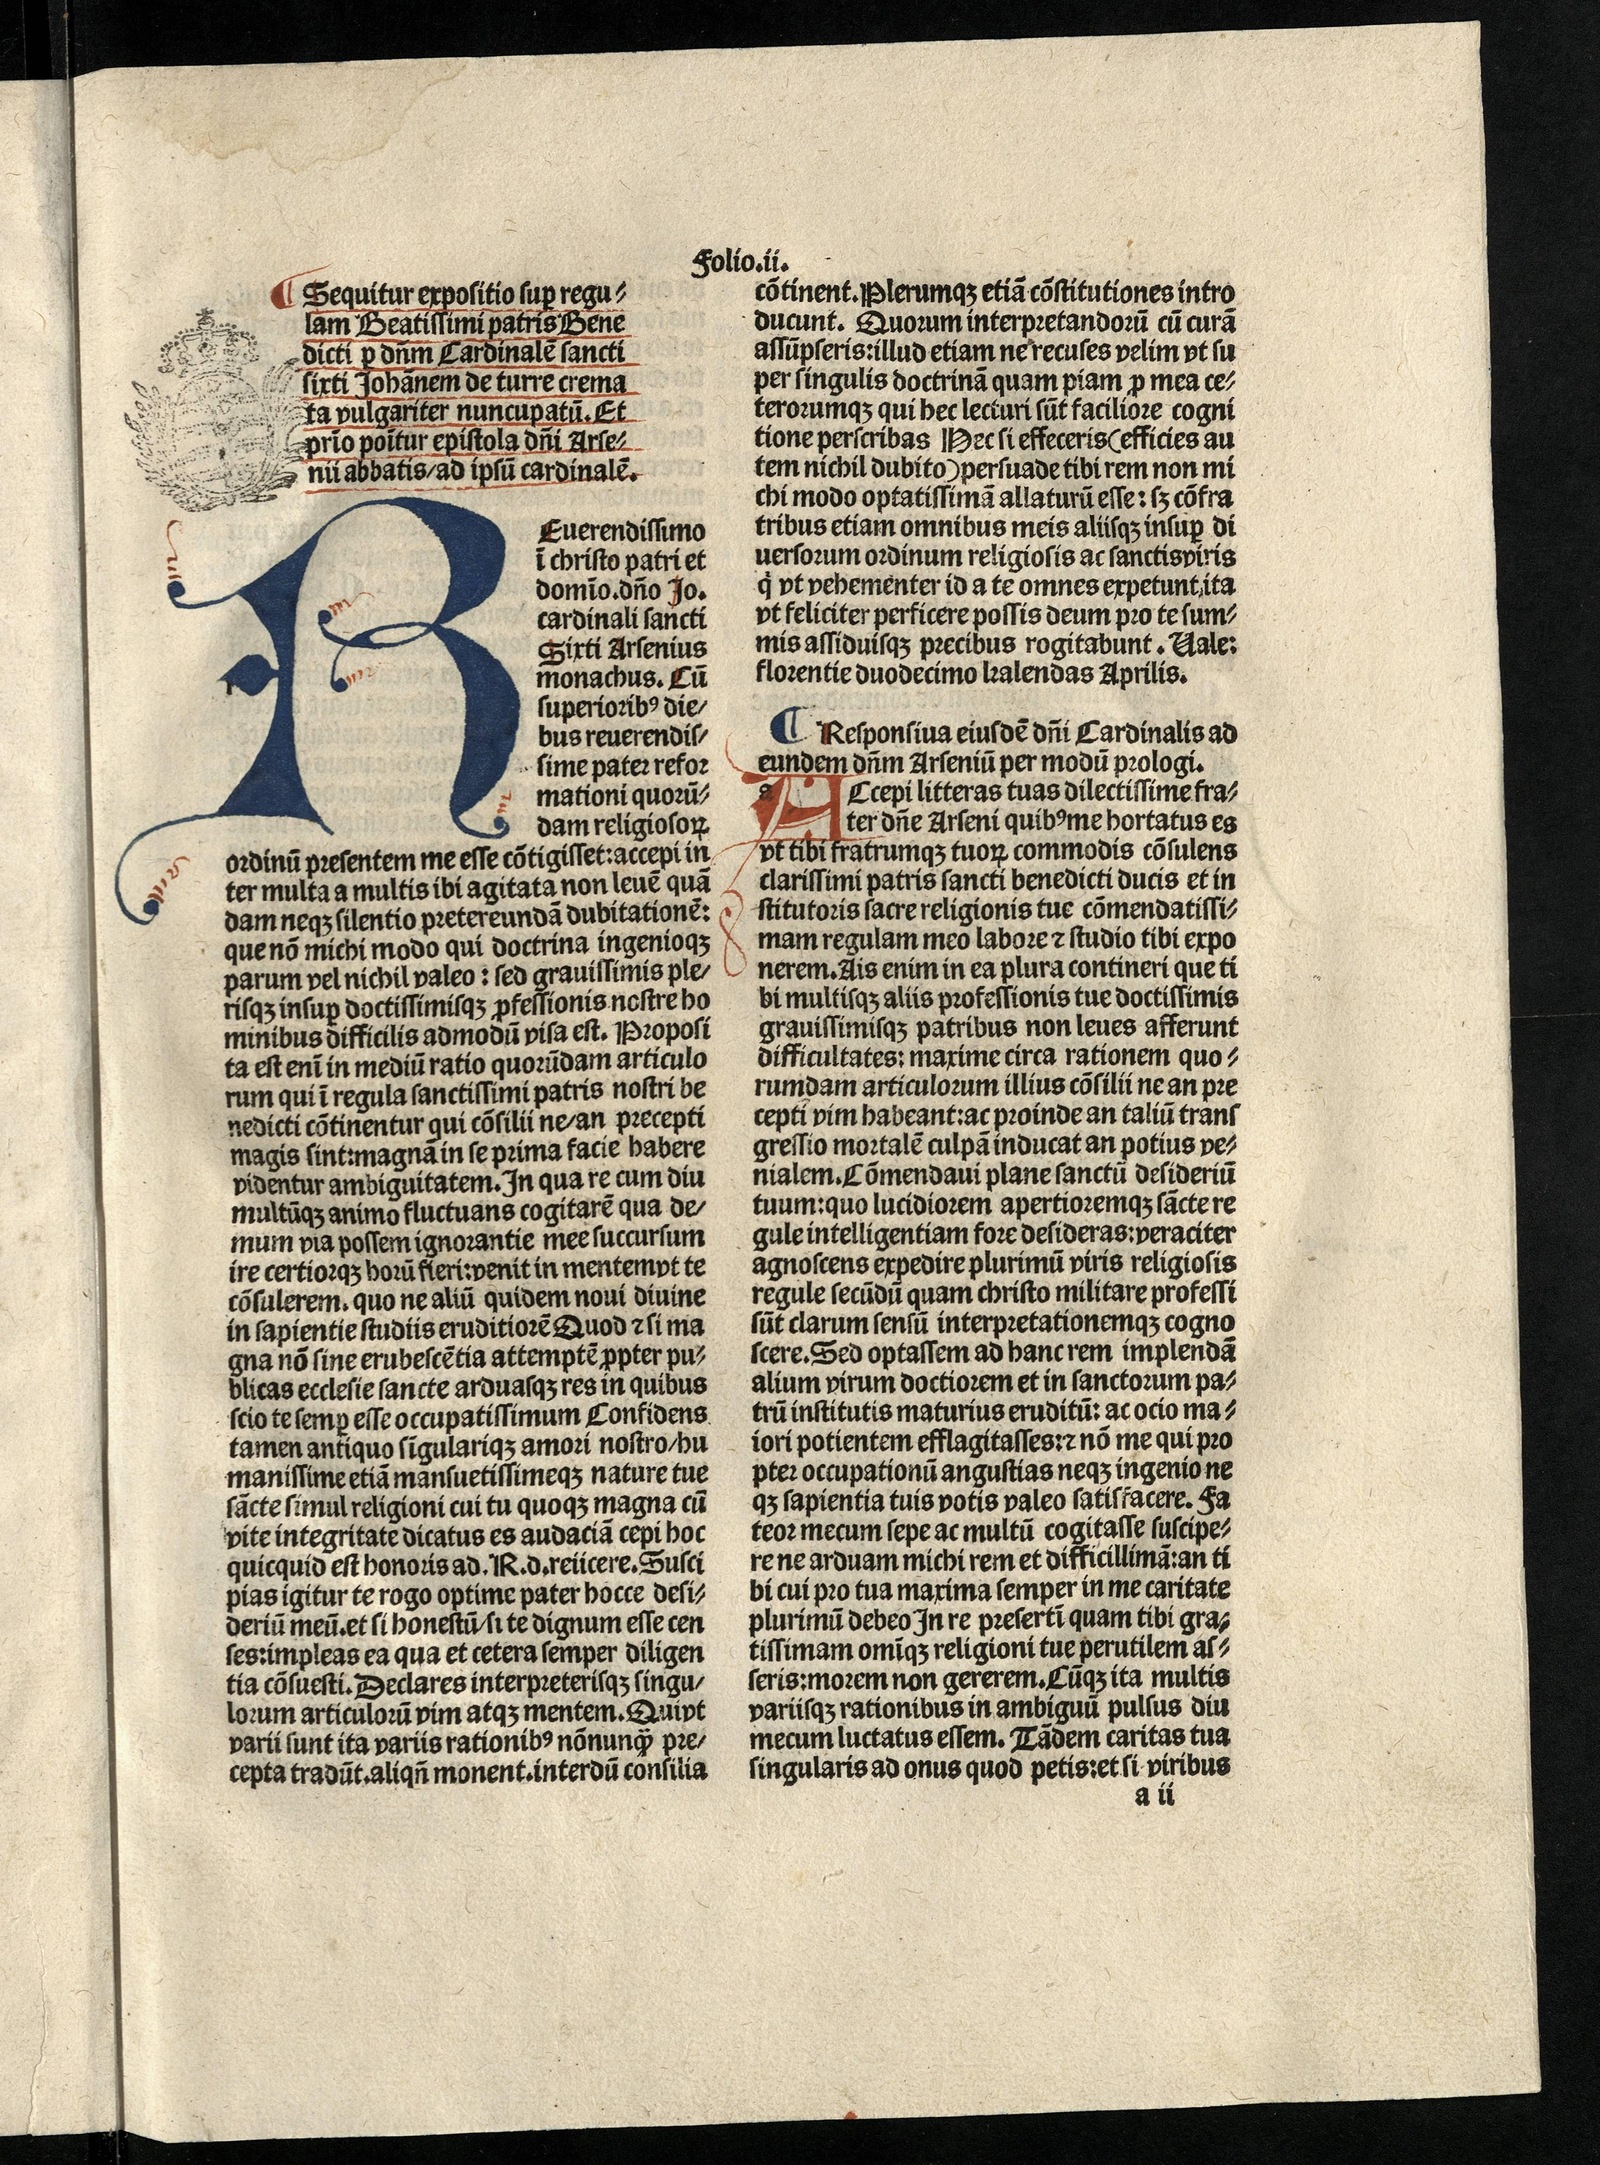 Folio.ii.
¶ Sequitur expositio suꝑ regu⸗
lam Beatissimi patris Bene
dicti p dñm Cardinalē sancti
sixti Johānem de turre crema
ta vulgariter nuncupatū. Et
prīo poītur epistola dñi Arse⸗
nii abbatis/ad ipsū cardinalē.
REuerendissimo
ī christo patri et
domīo.dño Jo.
cardinali sancti
Sixti Arsenius
monachus. Cū
superioribꝰ die/
bus reuerendis/
sime pater refor
mationi quorū⸗
dam religiosoꝝ
ordinū presentem me esse cōtigisset:accepi in
ter multa a multis ibi agitata non leuē quā
dam neqꝫ silentio pretereundā dubitationē:
que nō michi modo qui doctrina ingenioqꝫ
parum vel nichil valeo : sed grauissimis ple/
risqꝫ insuꝑ doctissimisqꝫ ꝓfessionis nostre ho
minibus difficilis admodū visa est. Proposi
ta est enī in mediū ratio quorūdam articulo
rum qui ī regula sanctissimi patris nostri be
nedicti cōtinentur qui cōsilii ne/an precepti
magis sint:magnā in se prima facie habere
videntur ambiguitatem. In qua re cum diu
multūqꝫ animo fluctuans cogitarē qua de/
mum via possem ignorantie mee succursum
ire certiorqꝫ horū fieri:venit in mentem vt te
cōsulerem. quo ne aliū quidem noui diuine
in sapientie studiis eruditiorē Quod ⁊ si ma
gna nō sine erubescētia attemptē ꝓpter pu⸗
blicas ecclesie sancte arduasqꝫ res in quibus
scio te semꝑ esse occupatissimum Confidens
tamen antiquo sīgulariqꝫ amori nostro/hu
manissime etiā mansuetissimeqꝫ nature tue
sācte simul religioni cui tu quoqꝫ magna cū
vite integritate dicatus es audaciā cepi hoc
quicquid est honoris ad. R.d.reiicere. Susci
pias igitur te rogo optime pater hocce desi⸗
deriū meū.et si honestū/si te dignum esse cen
ses:impleas ea qua et cetera semper diligen
tia cōsuesti. Declares interpreterisqꝫ singu/
lorum articulorū vim atqꝫ mentem. Qui vt
varii sunt ita variis rationibꝰ nōnunq̄ȝ pre/
cepta tradūt.aliqñ monent.interdū consilia
cōtinent. Plerumqꝫ etiā cōstitutiones intro
ducunt. Quorum interpretandorū cū curā
assūpseris:illud etiam ne recuses velim vt su
per singulis doctrinā quam piam ꝓ mea ce⸗
terorumqꝫ qui hec lecturi sūt faciliore cogni
tione perscribas Hec si effeceris(efficies au
tem nichil dubito)persuade tibi rem non mi
chi modo optatissimā allaturū esse: sꝫ cōfra
tribus etiam omnibus meis aliisqꝫ insuꝑ di
uersorum ordinum religiosis ac sanctis viris
q̇ vt vehementer id a te omnes expetunt,ita
vt feliciter perficere possis deum pro te sum⸗
mis assiduisqꝫ precibus rogitabunt . Uale:
florentie duodecimo kalendas Aprilis.
¶ Responsiua eiusdē dñi Cardinalis ad
eundem dñm Arseniū per modū prologi.
ACcepi litteras tuas dilectissime fra⸗
ter dñe Arseni quibꝰ me hortatus es
vt tibi fratrumqꝫ tuoꝝ commodis cōsulens
clarissimi patris sancti benedicti ducis et in
stitutoris sacre religionis tue cōmendatissi⸗
mam regulam meo labore ⁊ studio tibi expo
nerem. Ais enim in ea plura contineri que ti
bi multisqꝫ aliis professionis tue doctissimis
grauissimisqꝫ patribus non leues afferunt
difficultates: maxime circa rationem quo⸗
rumdam articulorum illius cōsilii ne an pre
cepti vim habeant:ac proinde an taliū trans
gressio mortalē culpā inducat an potius ve⸗
nialem. Cōmendaui plane sanctū desideriū
tuum:quo lucidiorem apertioremqꝫ sācte re
gule intelligentiam fore desideras:veraciter
agnoscens expedire plurimū viris religiosis
regule secūdū quam christo militare professi
sūt clarum sensū interpretationemqꝫ cogno
scere. Sed optassem ad hanc rem implendā
alium virum doctiorem et in sanctorum pa⸗
trū institutis maturius eruditū: ac ocio ma⸗
iori potientem efflagitasses:⁊ nō me qui pro
pter occupationū angustias neqꝫ ingenio ne
qꝫ sapientia tuis votis valeo satisfacere. Fa
teor mecum sepe ac multū cogitasse suscipe⸗
re ne arduam michi rem et difficillimā:an ti
bi cui pro tua maxima semper in me caritate
plurimū debeo In re presertī quam tibi gra⸗
tissimam omīqꝫ religioni tue perutilem as⸗
seris:morem non gererem. Cūqꝫ ita multis
variisqꝫ rationibus in ambiguū pulsus diu
mecum luctatus essem. Tādem caritas tua
singularis ad onus quod petis:et si viribus
a ii